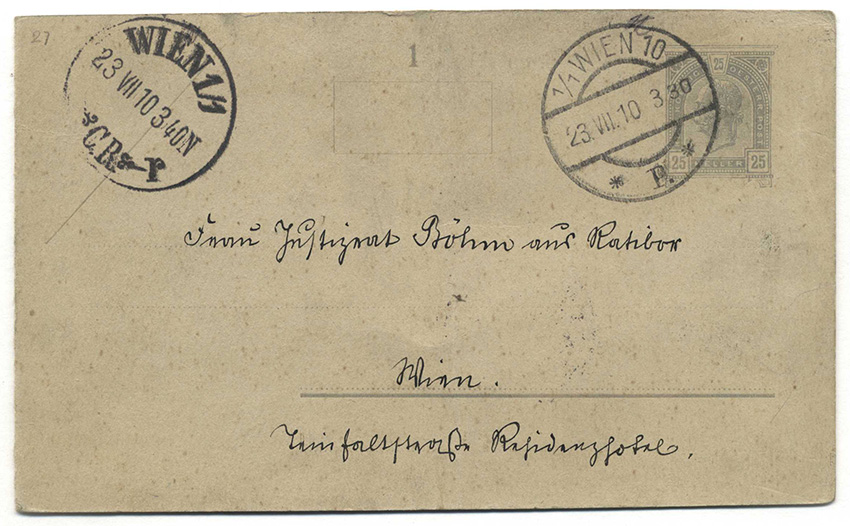 27
WIEN 1/1
23 VII 10 3 40N
*C.R* P
1
1/1 WIEN 10
23.VII.10 3 30
* P. *
25
25 HELLER 25
Frau Justizrat Böhm aus Ratibor
Wien.
Teinfaltstraße Residenzhotel.